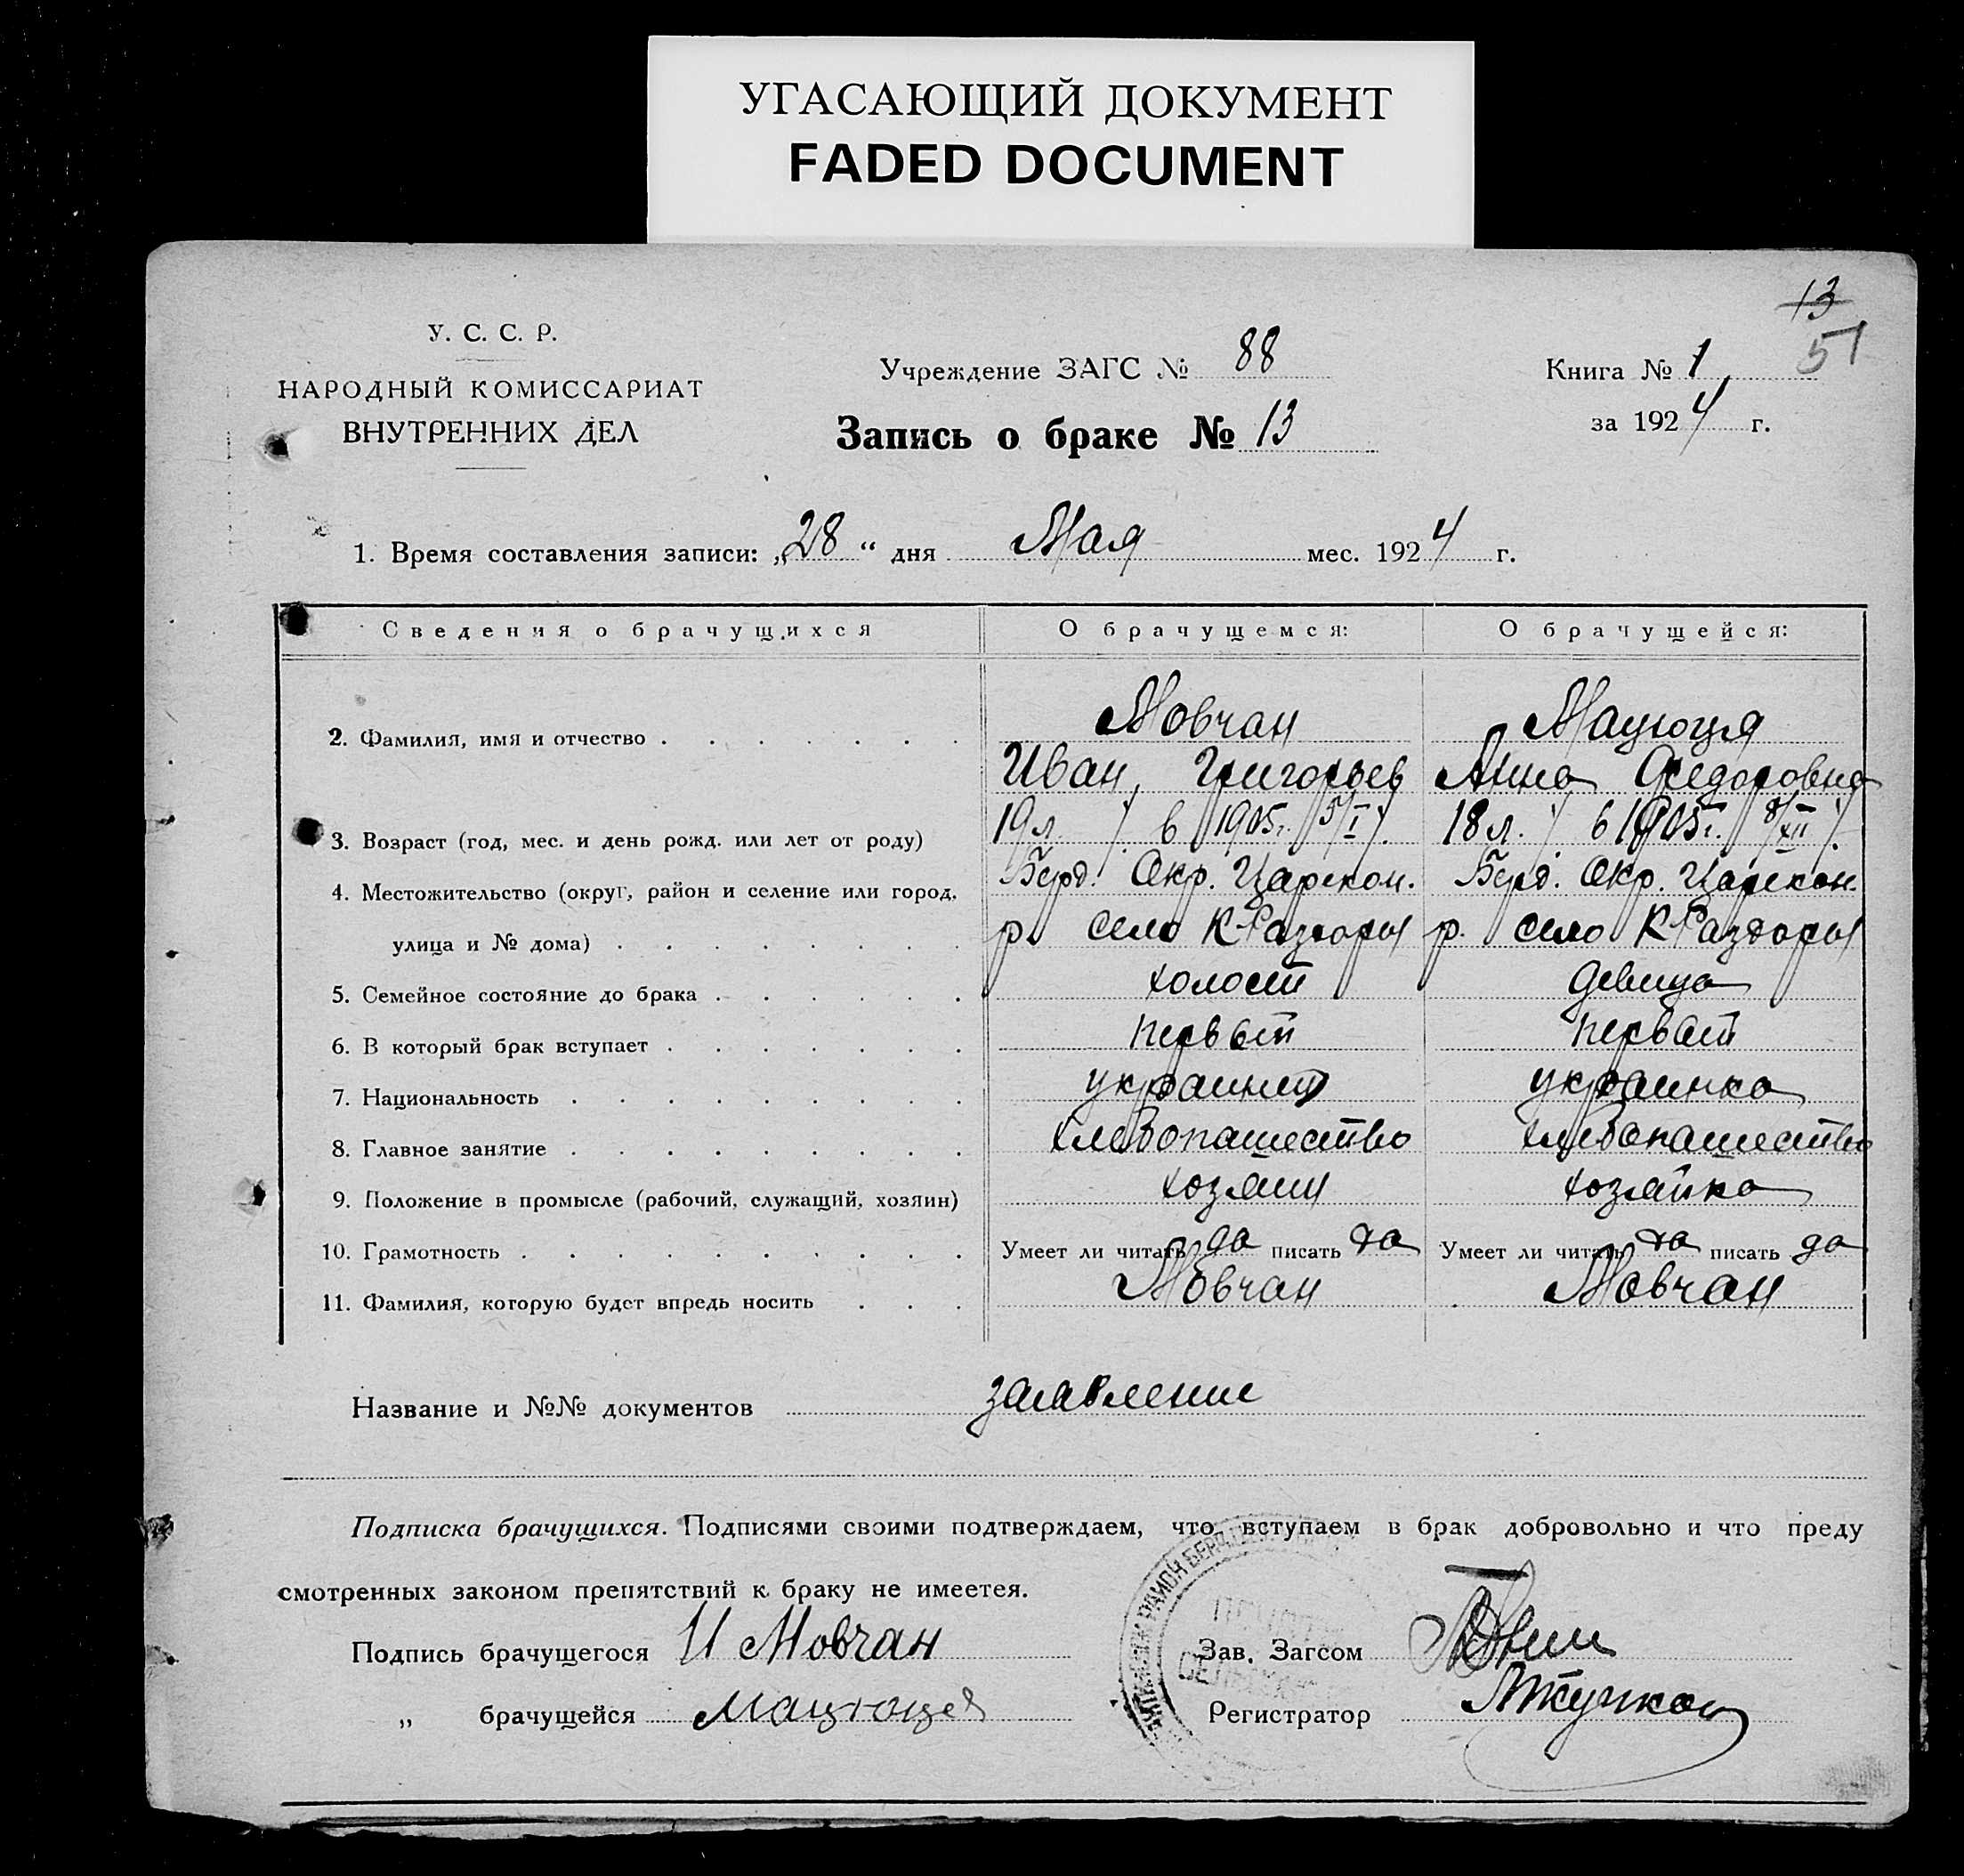 УГАСАЮЩИЙ ДОКУМЕНТ
FADED DOCUMENT
13
51
У. С. С. Р.
НАРОДНЫЙ КОМИССАРИАТ
ВНУТРЕННИХ ДЕЛ
Учреждение ЗАГС № 88
Запись о браке № 13
Книга № 1
за 1924 г.
1. Время составления записи: „28“ дня Мая мес. 1924 г.
Сведения о брачущихся О брачущемся: О брачущейся:
2. Фамилия, имя и отчество Мовчан Мацюця
Иван Григорьев Анна Федоровна
3. Возраст (год, мес. и день рожд. или лет от роду) 19 л. / в 1905 г. 5/I /. 18 л. / в 1905 г. 8/XII /.
4. Местожительство (округ, район и селение или город, Берд. Окр. Царекон. Берд. Окр. Царекон.
улица и № дома) р. село К-Раздоры р. село К-Раздоры
5. Семейное состояние до брака холост девица
6. В который брак вступает первый первый
7. Национальность украинец украинка
8. Главное занятие хлебопашество хлебопашество
9. Положение в промысле (рабочий, служащий, хозяин) хозяин хозяйка
10. Грамотность Умеет ли читать да писать да Умеет ли читать да писать да
11. Фамилия, которую будет впредь носить Мовчан Мовчан
Название и №№ документов заявление
Подписка брачущихся. Подписями своими подтверждаем, что вступаем в брак добровольно и что преду
смотренных законом препятствий к браку не имеется.
Подпись брачущегося И Мовчан Зав. Загсом
„ брачущейся Мацюця Регистратор
РАЙОН БЕРД